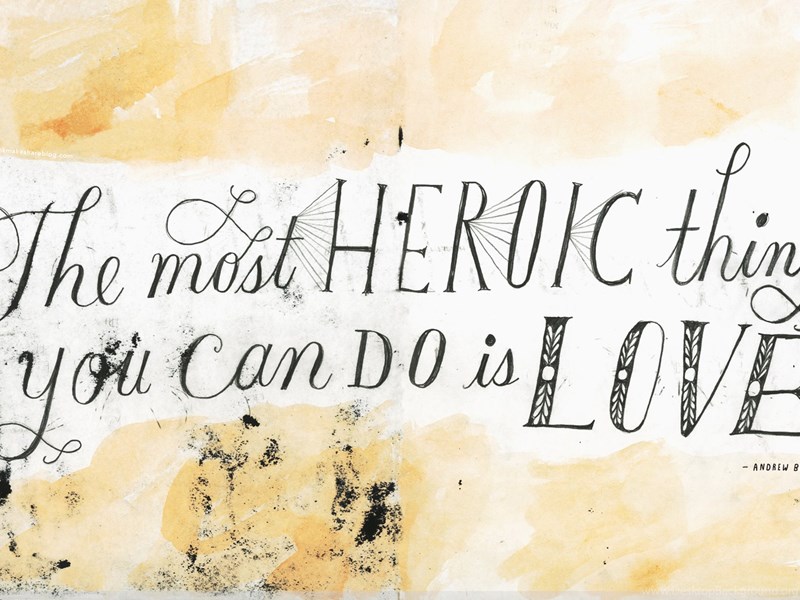 The most HEROIC thin
you can DO is LOVE
- ANDREW B